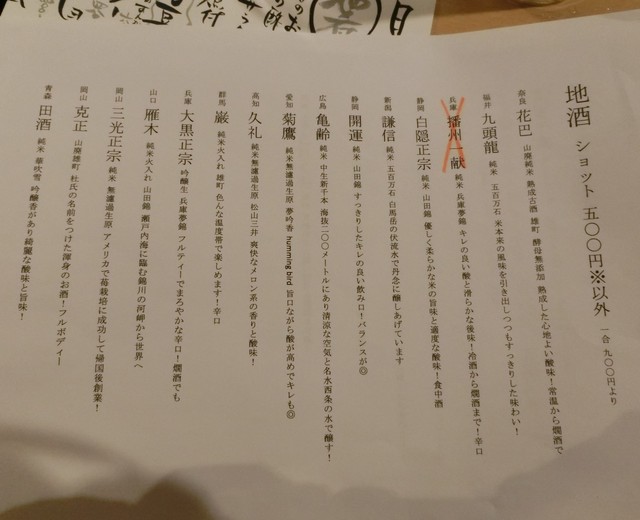 地酒 ショット 五〇〇円※以外 一合 九〇〇円より
奈良 花巴 山廃純米 熟成古酒 雄町 酵母無添加 熟成した心地よい酸味！常温から燗酒で
福井 九頭龍 純米 五百万石 米本来の風味を引き出しつつもすっきりした味わい！
兵庫 播州一献 純米 兵庫夢錦 キレの良い酸と滑らかな後味！冷酒から燗酒まで！辛口
静岡 白隠正宗 純米 山田錦 優しく柔らかな米の旨味と適度な酸味！食中酒
新潟 謙信 純米 五百万石 白馬岳の伏流水で丹念に醸しあげています
静岡 開運 純米 山田錦 すっきりしたキレの良い飲み口！バランスが◎
広島 亀齢 純米 中生新千本 海抜二〇〇メートルにあり清涼な空気と名水西条の水で醸す！
愛知 菊鷹 純米無濾過生原 夢吟香 humming bird 旨口ながら酸が高めでキレも◎
高知 久礼 純米無濾過生原 松山三井 爽快なメロン系の香りと酸味！
群馬 巌 純米火入れ 雄町 色んな温度帯で楽しめます！辛口
兵庫 大黒正宗 吟醸生 兵庫夢錦 フルティーでまろやかな辛口！燗酒でも
山口 雁木 純米火入れ 山田錦 瀬戸内海に臨む錦川の河岬から世界へ
岡山 三光正宗 純米 無濾過生原 アメリカで苺栽培に成功して帰国後創業！
岡山 克正 山廃雄町 杜氏の名前をつけた渾身のお酒！フルボディー
青森 田酒 純米 華吹雪 吟醸香があり綺麗な酸味と旨味！